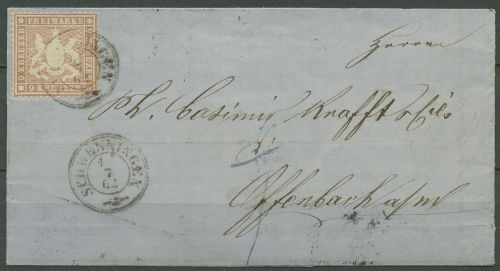 FREIMARKE
9 KREUZER
Herren
Ph. Casimir Krafft & Fils
Offenbach a/m
SCHWENNINGEN
7
62